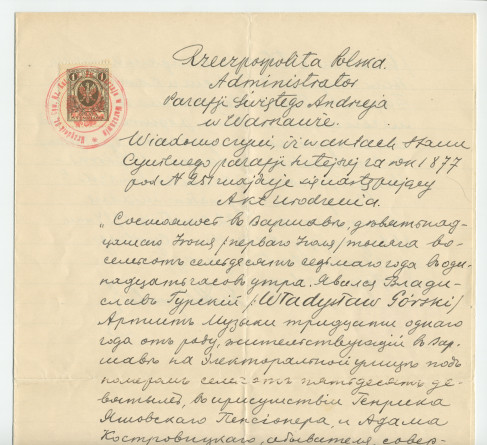 Rzeczpospolita Polska.
Administrator
Parafji Świętego Andrzeja
w Warszawie.
Wiadomo czyni, iż w aktach Stanu
Cywilnego parafji tutejszej za rok 1877
pod № 251 znajduje się następujący
Akt urodzenia.
„Состоялось въ Варшавѣ, девятьнад-
цатаго Іюня /перваго Іюля/ тысяча во-
семьсотъ семьдесятъ седьмаго года въ оди-
надцать часовъ утра. Явился Влади-
славъ Гурскій /:Władysław Górski/
Артистъ Музыки тридцати однаго
года отъ роду, жительствующій въ Вар-
шавѣ на Электоральной улицѣ подъ
номеромъ семьсотъ пятьдесятъ де-
вятымъ, въ присутствіи Генрика
Яшовскаго Пенсіонера, и Адама
Костровицкаго, обывателя, совер-
1
1